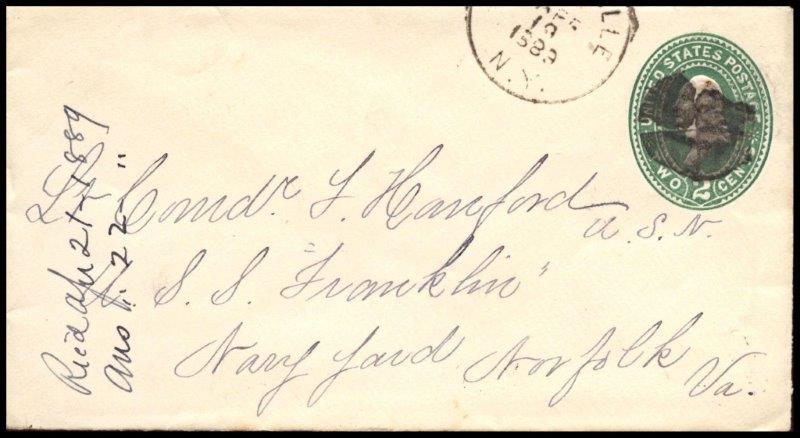 LLE
N.Y.
1889
UNITED STATES POSTAGE
TWO 2 CENTS
Lt Comdr F. Hanford
U.S.N.
U.S.S. "Franklin"
Navy Yard Norfolk
Va.
Rec'd Apr 21st 1889
Ans " 22 "